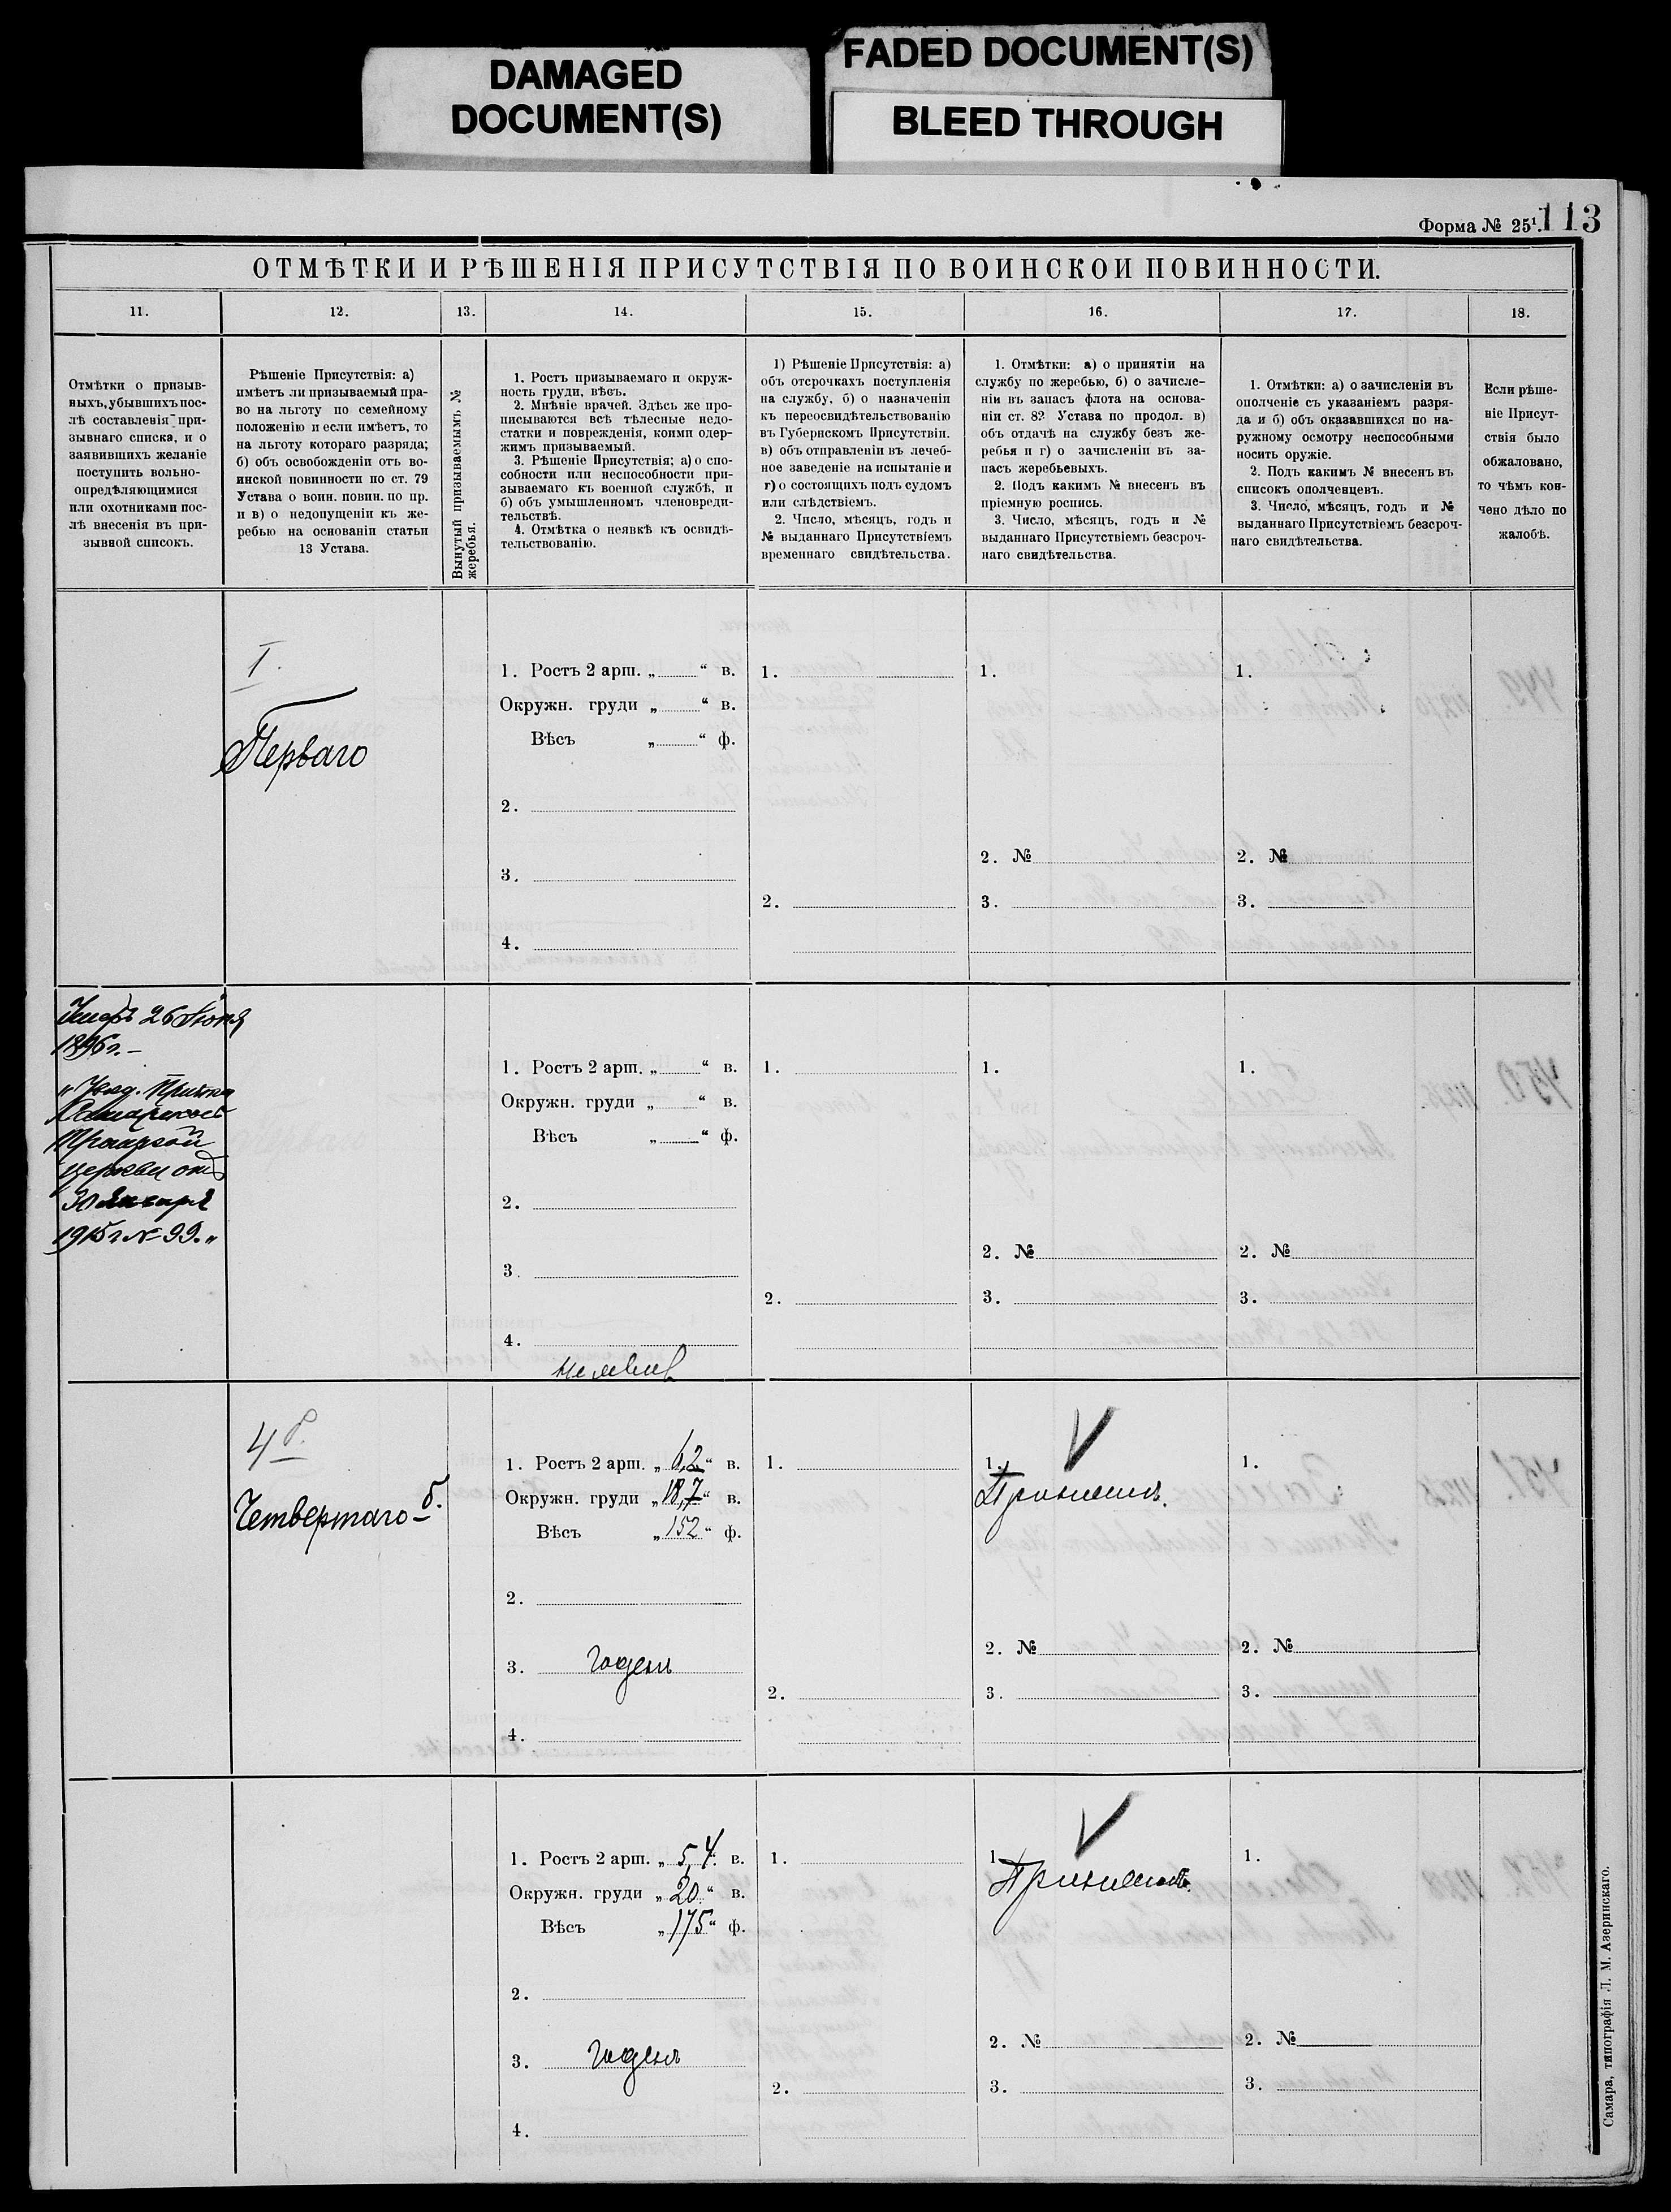 DAMAGED
DOCUMENT(S)
FADED DOCUMENT(S)
BLEED THROUGH
Форма № 25¹.
113
ОТМѢТКИ И РѢШЕНІЯ ПРИСУТСТВІЯ ПО ВОИНСКОИ ПОВИННОСТИ.
11.
12.
13.
14.
15.
16.
17.
18.
Отмѣтки о призыв-
ныхъ, убывшихъ пос-
лѣ составленія при-
зывнаго списка, и о
заявившихъ желаніе
поступить вольно-
опредѣляющимися
или охотниками пос-
лѣ внесенія въ при-
зывной списокъ.
Рѣшеніе Присутствія: а)
имѣетъ ли призываемый пра-
во на льготу по семейному
положенію и если имѣетъ, то
на льготу котораго разряда;
б) объ освобожденіи отъ во-
инской повинности по ст. 79
Устава о воин. повин. по пр.
и в) о недопущеніи къ же-
ребью на основаніи статьи
13 Устава.
Вынутый призываемымъ №
жеребья.
1. Ростъ призываемаго и окруж-
ность груди, вѣсъ.
2. Мнѣніе врачей. Здѣсь же про-
писываются всѣ тѣлесные недо-
статки и поврежденія, коими одер-
жимъ призываемый.
3. Рѣшеніе Присутствія; а) о спо-
собности или неспособности при-
зываемаго къ военной службѣ, и
б) объ умышленномъ членовреди-
тельствѣ.
4. Отмѣтка о неявкѣ къ освидѣ-
тельствованію.
1) Рѣшеніе Присутствія: а)
объ отсрочкахъ поступленія
на службу, б) о назначеніи
къ переосвидѣтельствованію
въ Губернскомъ Присутствіи.
в) объ отправленіи въ лечеб-
ное заведеніе на испытаніе и
г) о состоящихъ подъ судомъ
или слѣдствіемъ.
2. Число, мѣсяцъ, годъ и
№ выданнаго Присутствіемъ
временнаго свидѣтельства.
1. Отмѣтки: а) о принятіи на
службу по жеребью, б) о зачисле-
ніи въ запасъ флота на основа-
ніи ст. 82 Устава по продол. в)
объ отдачѣ на службу безъ же-
ребья и г) о зачисленіи въ за-
пасъ жеребьевыхъ.
2. Подъ какимъ № внесенъ въ
пріемную роспись.
3. Число, мѣсяцъ, годъ и №
выданнаго Присутствіемъ безсроч-
наго свидѣтельства.
1. Отмѣтки: а) о зачисленіи въ
ополченіе съ указаніемъ разря-
да и б) объ оказавшихся по на-
ружному осмотру неспособными
носить оружіе.
2. Подъ какимъ № внесенъ въ
списокъ ополченцевъ.
3. Число, мѣсяцъ, годъ и №
выданнаго Присутствіемъ безсроч-
наго свидѣтельства.
Если рѣше-
ніе Присут-
ствія было
обжаловано,
то чѣмъ кон-
чено дѣло по
жалобѣ.
I.
Перваго
1. Ростъ 2 арш. „ “ в.
Окружн. груди „ “ в.
Вѣсъ „ “ ф.
2.
3.
4.
1.
2.
1.
2. №
3.
1.
2. №
3.
Умеръ 26 Іюня
1896 г. –
„Увед. Причта
Самарской
церкви отъ
30 Января
1915 г. № 99.“
1. Ростъ 2 арш. „ “ в.
Окружн. груди „ “ в.
Вѣсъ „ “ ф.
2.
3.
4.
1.
2.
1.
2. №
3.
1.
2. №
3.
4 р.
Четвертаго б.
1. Ростъ 2 арш. „ 6,2 “ в.
Окружн. груди „ 18,7 “ в.
Вѣсъ „ 152 “ ф.
2.
3. годенъ
4.
1.
2.
1.
Принятъ.
2. №
3.
1.
2. №
3.
1. Ростъ 2 арш. „ 5,4 “ в.
Окружн. груди „ 20 “ в.
Вѣсъ „ 175 “ ф.
2.
3. годенъ
4.
1.
2.
1.
2. №
3.
1.
2. №
3.
Самара, типографія Л. М. Азеринскаго.